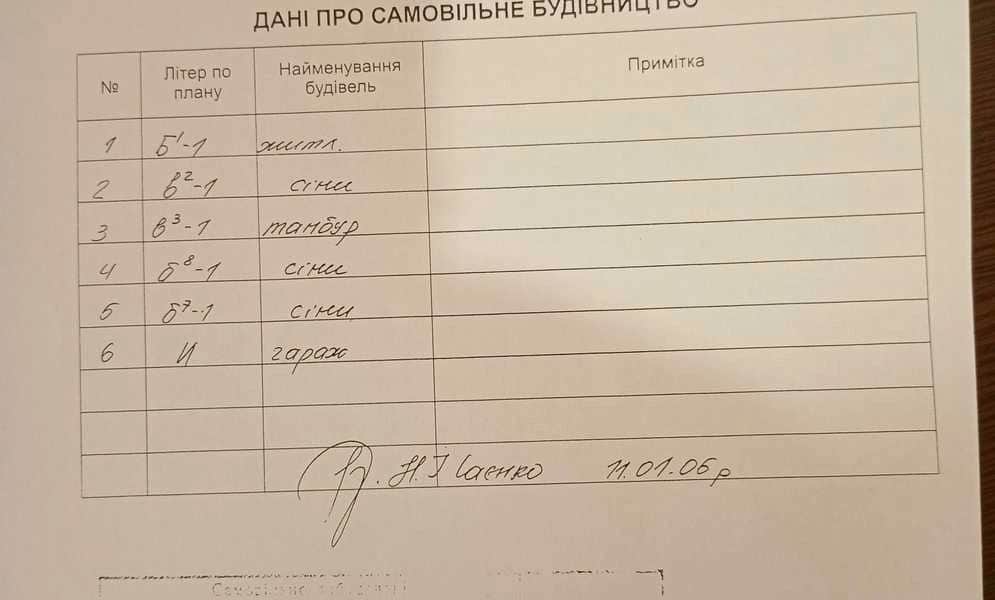 ДАНІ ПРО САМОВІЛЬНЕ БУДІВНИЦТВО
№ Літер по плану Найменування будівель Примітка
1 Б¹-1 житл.
2 в²-1 сіни
3 в³-1 тамбур
4 б⁸-1 сіни
5 б⁷-1 сіни
6 И гараж
Н.Ісаєнко 11.01.06 р